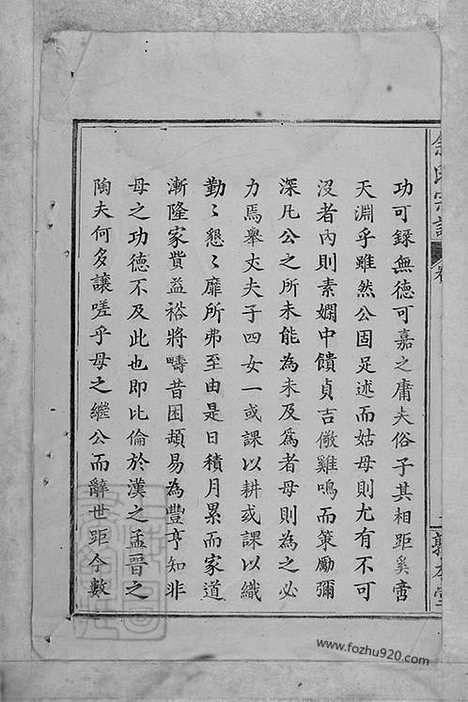 功可錄無德可嘉之庸夫俗子其相距奚啻
天淵乎雖然公固足述而姑母則尤有不可
沒者內則素嫻中饋貞吉儆雞鳴而策勵彌
深凡公之所未能為未及為者母則為之必
力焉舉丈夫子四女一或課以耕或課以織
勤〻懇〻靡所弗至由是日積月累而家道
漸隆家貲益裕將疇昔困頡易為豐亨知非
母之功德不及此也即比倫於漢之孟晉之
陶夫何多讓嗟乎母之繼公而辭世距今數
氏宗譜
卷
敦本堂
www.fozhu920.com